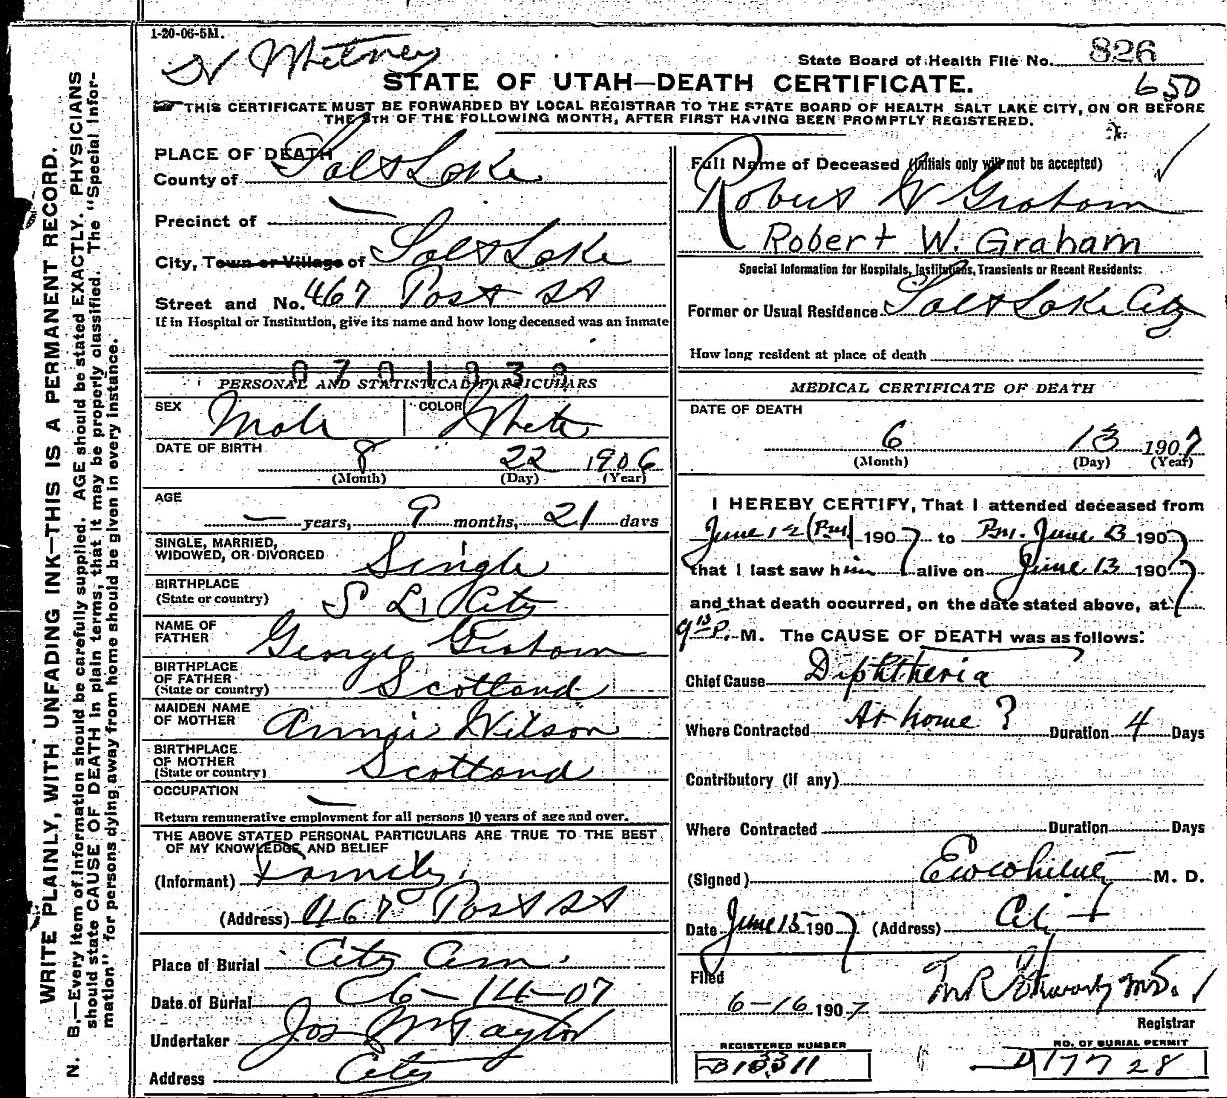 1-20-06-5M.
W Whitney
State Board of Health File No. 826
STATE OF UTAH—DEATH CERTIFICATE.
650
THIS CERTIFICATE MUST BE FORWARDED BY LOCAL REGISTRAR TO THE STATE BOARD OF HEALTH, SALT LAKE CITY, ON OR BEFORE
THE 5TH OF THE FOLLOWING MONTH, AFTER FIRST HAVING BEEN PROMPTLY REGISTERED.
WRITE PLAINLY, WITH UNFADING INK—THIS IS A PERMANENT RECORD.
N. B.—Every item of information should be carefully supplied. AGE should be stated EXACTLY. PHYSICIANS
should state CAUSE OF DEATH in plain terms, that it may be properly classified. The "Special Infor-
mation" for persons dying away from home should be given in every instance.
PLACE OF DEATH
County of Salt Lake
Precinct of —
City, Town or Village of Salt Lake
Street and No. 467 Post St
If in Hospital or Institution, give its name and how long deceased was an inmate
0701938
PERSONAL AND STATISTICAL PARTICULARS
SEX Male COLOR White
DATE OF BIRTH
8 22 1906
(Month) (Day) (Year)
AGE
— years, 9 months, 21 days
SINGLE, MARRIED,
WIDOWED, OR DIVORCED Single
BIRTHPLACE
(State or country) S L City
NAME OF
FATHER George Graham
BIRTHPLACE
OF FATHER
(State or country) Scotland
MAIDEN NAME
OF MOTHER Annie Wilson
BIRTHPLACE
OF MOTHER
(State or country) Scotland
OCCUPATION —
Return remunerative employment for all persons 10 years of age and over.
THE ABOVE STATED PERSONAL PARTICULARS ARE TRUE TO THE BEST
OF MY KNOWLEDGE AND BELIEF
(Informant) Family
(Address) 467 Post St
Place of Burial City Cem.
Date of Burial 6-14-07
Undertaker Jos Wm Taylor
Address City
Full Name of Deceased (Initials only will not be accepted)
Robert W Graham
Robert W. Graham
Special Information for Hospitals, Institutions, Transients or Recent Residents:
Former or Usual Residence Salt Lake City
How long resident at place of death
MEDICAL CERTIFICATE OF DEATH
DATE OF DEATH
6 13 1907
(Month) (Day) (Year)
I HEREBY CERTIFY, That I attended deceased from
June 12 (Pm) 1907 to Pm. June 13 1907
that I last saw him alive on June 13 1907
and that death occurred, on the date stated above, at
9 15 P. M. The CAUSE OF DEATH was as follows:
Chief Cause Diphtheria
Where Contracted At home ? Duration 4 Days
Contributory (if any)
Where Contracted Duration Days
(Signed) M. D.
Date June 15 1907 (Address) City
Filed
6-16 1907
Registrar
REGISTERED NUMBER
NO. OF BURIAL PERMIT
D 17728